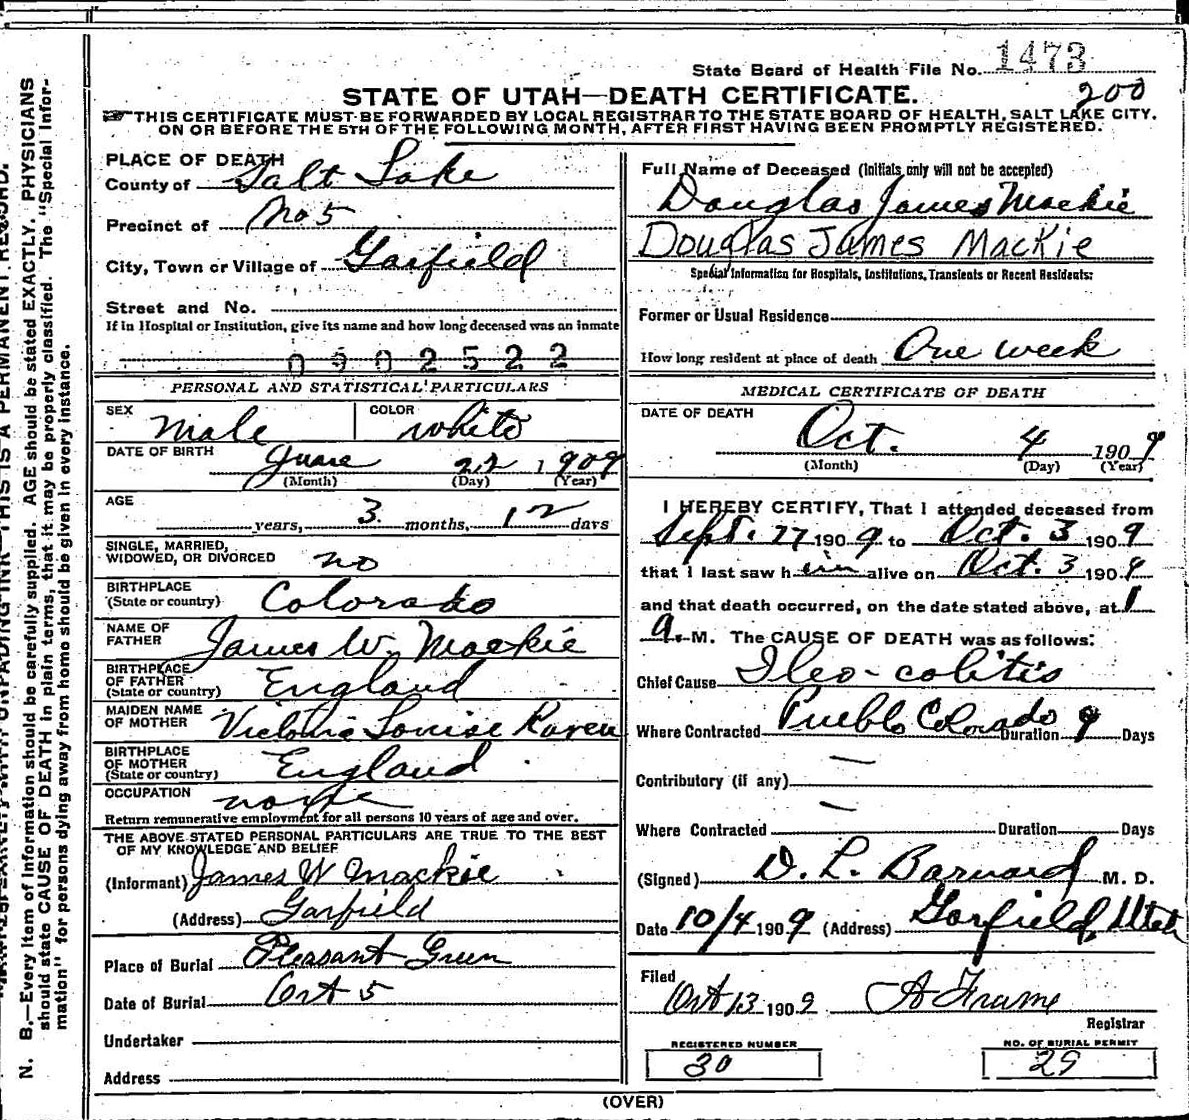 State Board of Health File No. 1473
200
STATE OF UTAH—DEATH CERTIFICATE.
THIS CERTIFICATE MUST BE FORWARDED BY LOCAL REGISTRAR TO THE STATE BOARD OF HEALTH, SALT LAKE CITY.
ON OR BEFORE THE 5TH OF THE FOLLOWING MONTH, AFTER FIRST HAVING BEEN PROMPTLY REGISTERED.
PLACE OF DEATH
County of Salt Lake
Precinct of No 5
City, Town or Village of Garfield
Street and No.
If in Hospital or Institution, give its name and how long deceased was an inmate
0902522
PERSONAL AND STATISTICAL PARTICULARS
SEX Male COLOR White
DATE OF BIRTH June 22, 1909
(Month) (Day) (Year)
AGE
years, 3 months, 12 days
SINGLE, MARRIED,
WIDOWED, OR DIVORCED no
BIRTHPLACE
(State or country) Colorado
NAME OF
FATHER James W. Mackie
BIRTHPLACE
OF FATHER
(State or country) England
MAIDEN NAME
OF MOTHER Victoria Louise Raven
BIRTHPLACE
OF MOTHER
(State or country) England
OCCUPATION none
Return remunerative employment for all persons 10 years of age and over.
THE ABOVE STATED PERSONAL PARTICULARS ARE TRUE TO THE BEST
OF MY KNOWLEDGE AND BELIEF
(Informant) James W Mackie
(Address) Garfield
Place of Burial Pleasant Green
Date of Burial Oct 5
Undertaker
Address
Full Name of Deceased (Initials only will not be accepted)
Douglas James Mackie
Douglas James Mackie
Special Information for Hospitals, Institutions, Transients or Recent Residents:
Former or Usual Residence
How long resident at place of death One week
MEDICAL CERTIFICATE OF DEATH
DATE OF DEATH
Oct. 4 1909
(Month) (Day) (Year)
I HEREBY CERTIFY, That I attended deceased from
Sept. 27 1909 to Oct. 3 1909
that I last saw him alive on Oct. 3 1909
and that death occurred, on the date stated above, at 1
a. M. The CAUSE OF DEATH was as follows:
Chief Cause Ileo-colitis
Where Contracted Pueblo Colorado Duration 9 Days
Contributory (if any) —
Where Contracted — Duration Days
(Signed) D. L. Barnard M. D.
Date 10/4 1909 (Address) Garfield, Utah
Filed
Oct 13 1909 A Frame
Registrar
REGISTERED NUMBER
30
NO. OF BURIAL PERMIT
29
(OVER)
N. B.—Every item of information should be carefully supplied. AGE should be stated EXACTLY. PHYSICIANS
should state CAUSE OF DEATH in plain terms, that it may be properly classified. The "Special Infor-
mation" for persons dying away from home should be given in every instance.
THIS IS A PERMANENT RECORD.